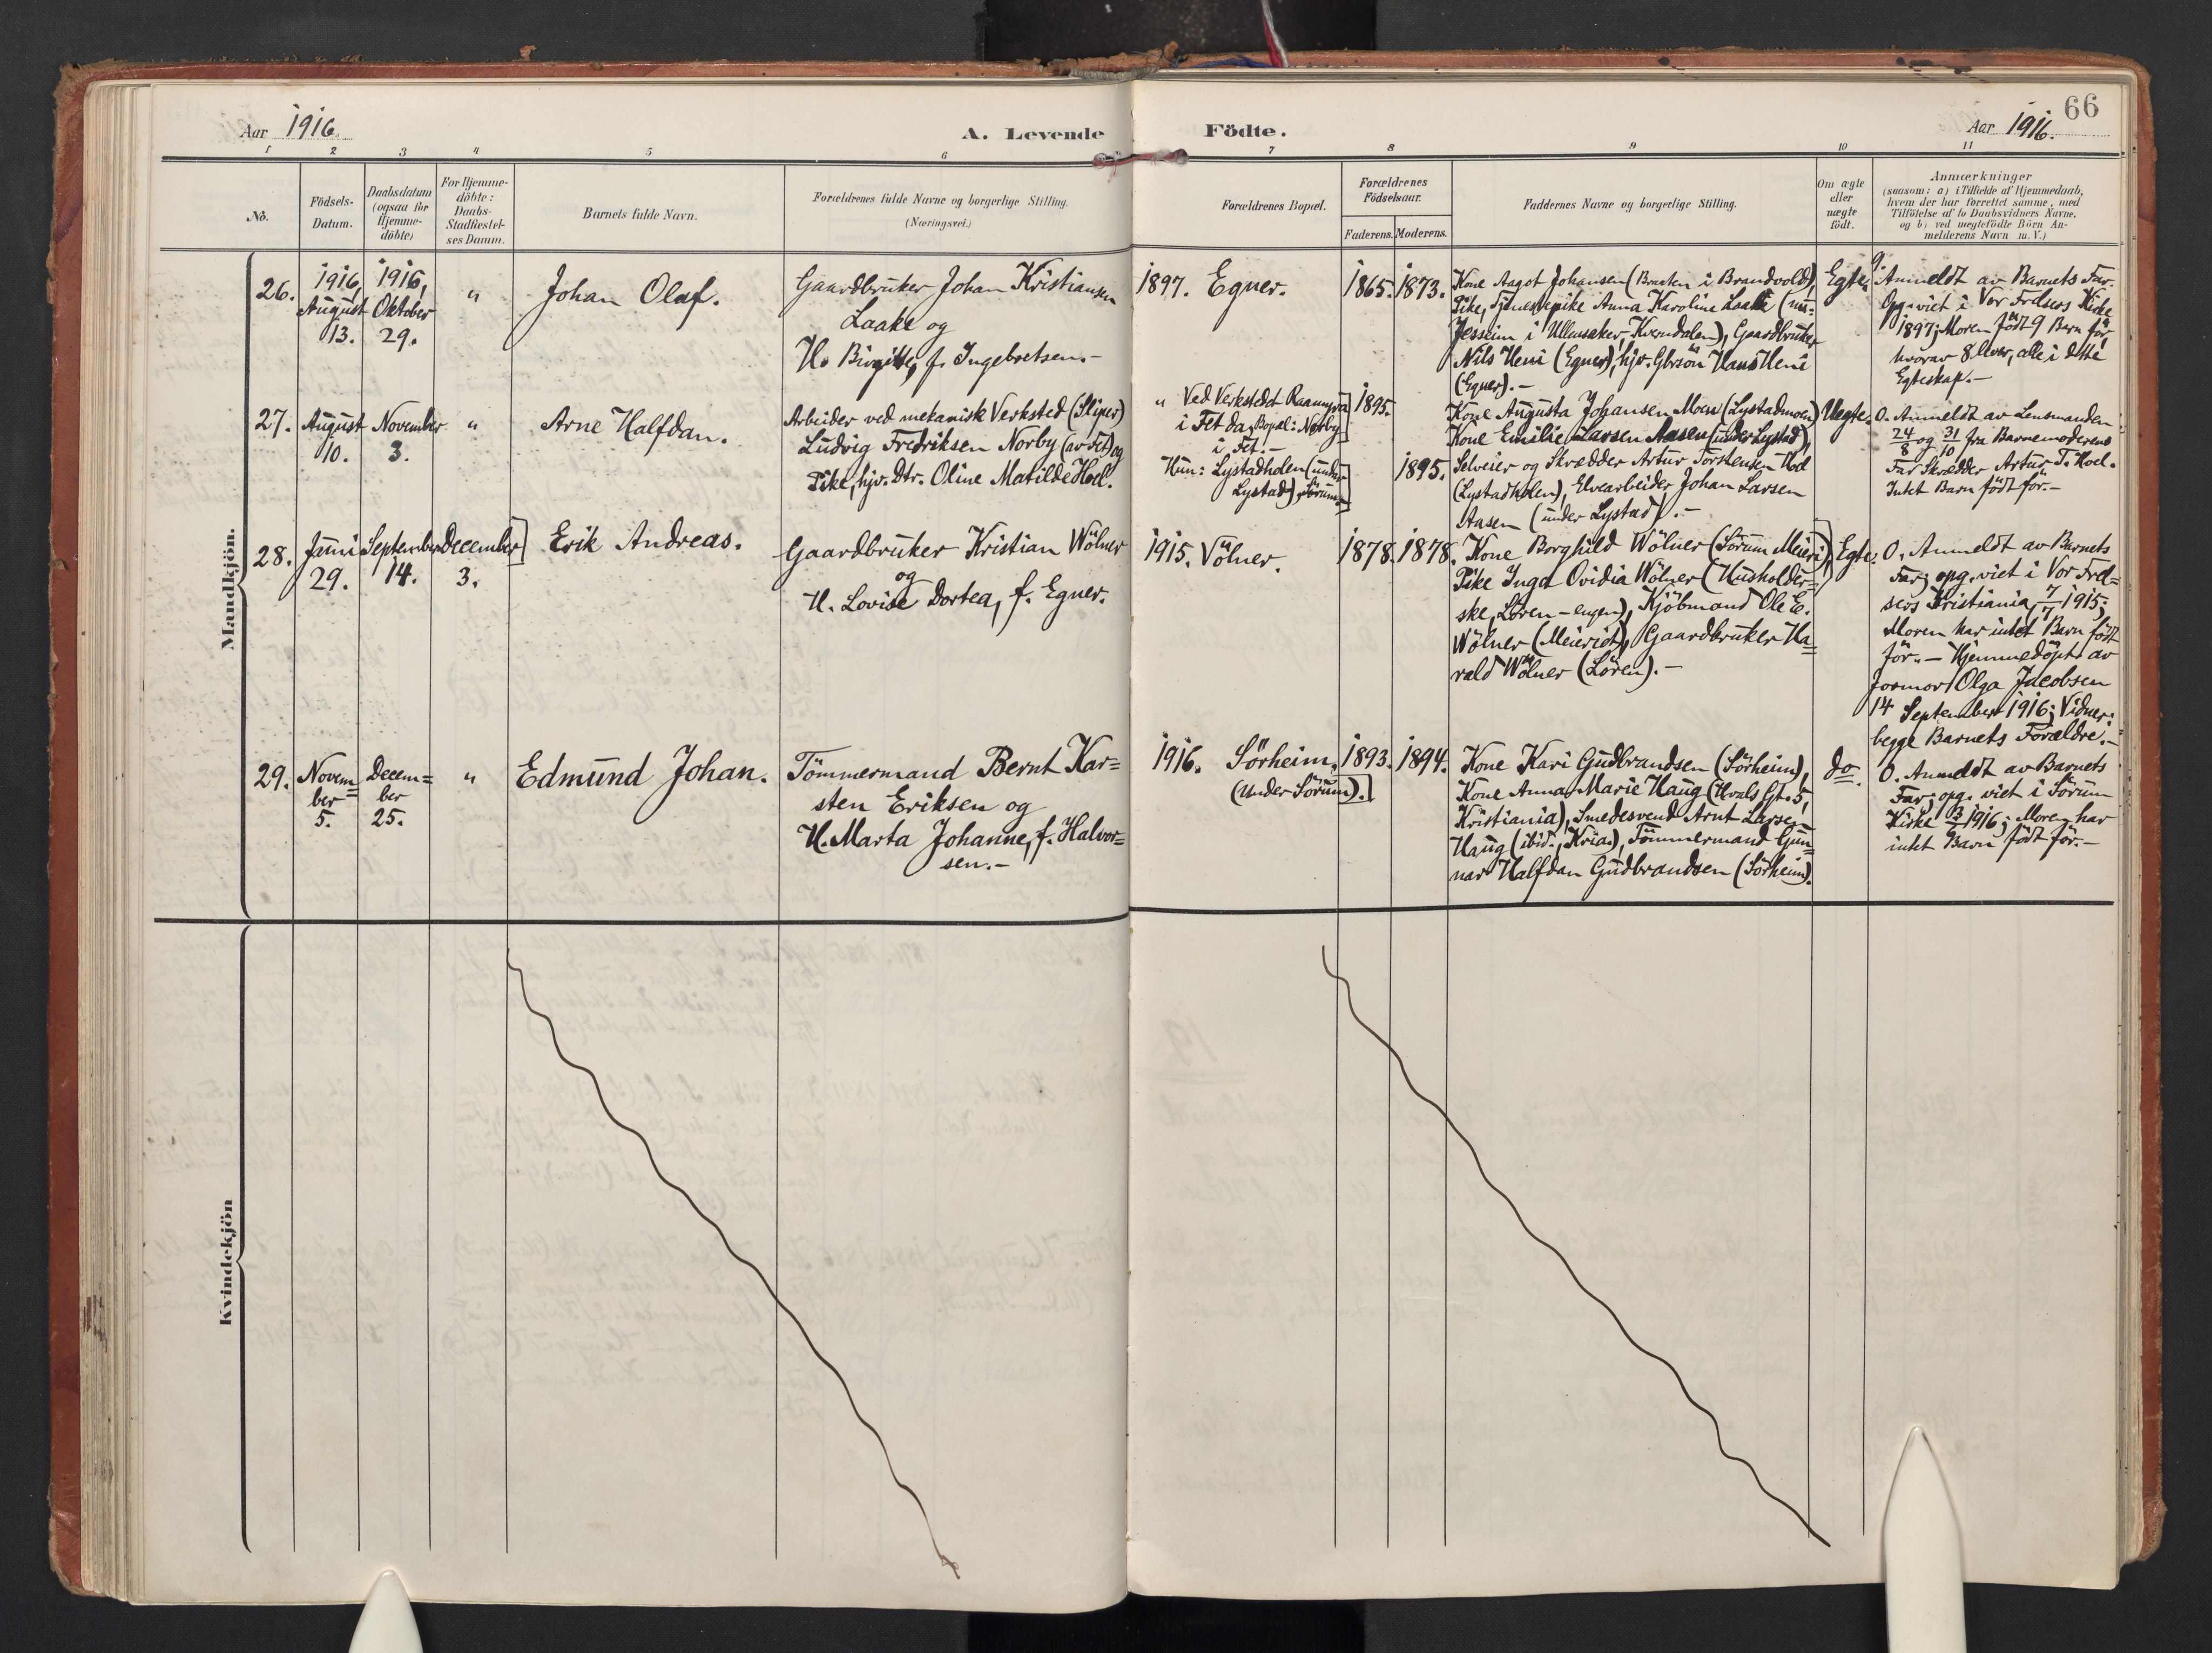 66
Aar 1916.
A. Levende Födte.
Aar 1916.
1 2 3 4 5 6 7 8 9 10 11
No.
Födsels-
Datum.
Daabsdatum
(ogsaa for
Hjemme-
döbte)
For Hjemme-
döbte:
Daabs-
Stadfæstel-
ses Datum.
Barnets fulde Navn.
Forældrenes fulde Navne og borgerlige Stilling.
(Næringsvei.)
Forældrenes Bopæl.
Forældrenes
Födselsaar.
Faderens. Moderens.
Faddernes Navne og borgerlige Stilling.
Om ægte
eller
uægte
födt.
Anmærkninger
(saasom: a) i Tilfælde af Hjemmedaab,
hvem der har forrettet samme, med
Tilföielse af to Daabsvidners Navne.
og b) ved uægtefödte Börn An-
melderens Navn m. V.)
Mandkjön.
26.
1916,
August
13.
1916,
Oktober
29.
"
Johan Olaf.
Gaardbruker Johan Kristiansen
Laake og
H. Birgitte, f. Ingebretsen.-
1897. Egner.
1865.
1873.
Kone Aagot Johansen (Braaten i Brandvold),
Pike, Tjenestepike Anna Karoline Laake
Jesseim i Ullensaker, Kverndalen), Gaardbruker
Nils Heni (Egner), hjv. Gbrsön Hans Heni
(Egner).-
Egte.
9.
Anmeldt av Barnets Far.
Opg. viet i Vor Frelsers Kirke
1897; Moren födt 9 Barn för,
hvorav 8 lever, alle i dette
Egteskap.-
27.
August
10.
November
3.
"
Arne Halfdan.
Arbeider ved mekanisk Verksted (Sliper)
Ludvig Fredriksen Norby (av Fet) og
Pike, hjv. Dtr. Oline Matilde Hoel.
" Ved Verkstedet
i Fet da, Bopæl: Norby
i Fet.-
Hun: Lystadholen (under
Lystad), Sörum.
1895.
1895.
Kone Augusta Johansen Moen (Lystadmoen)
Kone Emilie Larsen Aasen (under Lystad),
Selveier og Skrædder Artur Torstensen Hoel
(Lystadholen), Elvearbeider Johan Larsen
Aasen (under Lystad).-
Uegte.
0. Anmeldt av Lensmanden
24/8 og 31/10 fra Barnemoderens
Far Skrædder Artur T. Hoel.
Intet Barn födt för.-
28.
Juni
29.
September
14.
December
3.
Erik Andreas.
Gaardbruker Kristian Wölner
og
H. Lovise Dortea, f. Egner.
1915. Völner.
1878.
1878.
Kone Borghild Wölner (Sörum Meieri),
Pike Inga Ovidia Wölner (Husholder-
ske, Lören-engen), Kjöbmand Ole E.
Wölner (Meieriet), Gaardbruker Ha=
rald Wölner (Lören).-
Egte.
0. Anmeldt av Barnets
Far; opg. viet i Vor Frel=
sers Kristiania 7/7 1915;
Moren har intet Barn födt
för.- Hjemmedöpt av
Jormor Olga Jacobsen
14 September 1916; Vidner:
begge Barnets Forældre.-
29.
Novem=
ber
5.
Decem=
ber
25.
"
Edmund Johan.
Tömmermand Bernt Kar=
sten Eriksen og
H. Marta Johanne, f. Halvor=
sen.-
1916. Sörheim.
(under Sörum).
1893.
1894.
Kone Kari Gudbrandsen (Sörheim),
Kone Anna Marie Haug (Hvals Gt. 5,
Kristiania), Smedesvend Arnt Larsen
Haug (ibid., Kria), Tömmermand Gun=
nar Halfdan Gudbrandsen (Sörheim).
do.
0. Anmeldt av Barnets
Far; opg. viet i Sörum
Kirke 3/6 1916; Moren har
intet Barn födt för.-
Kvindekjön